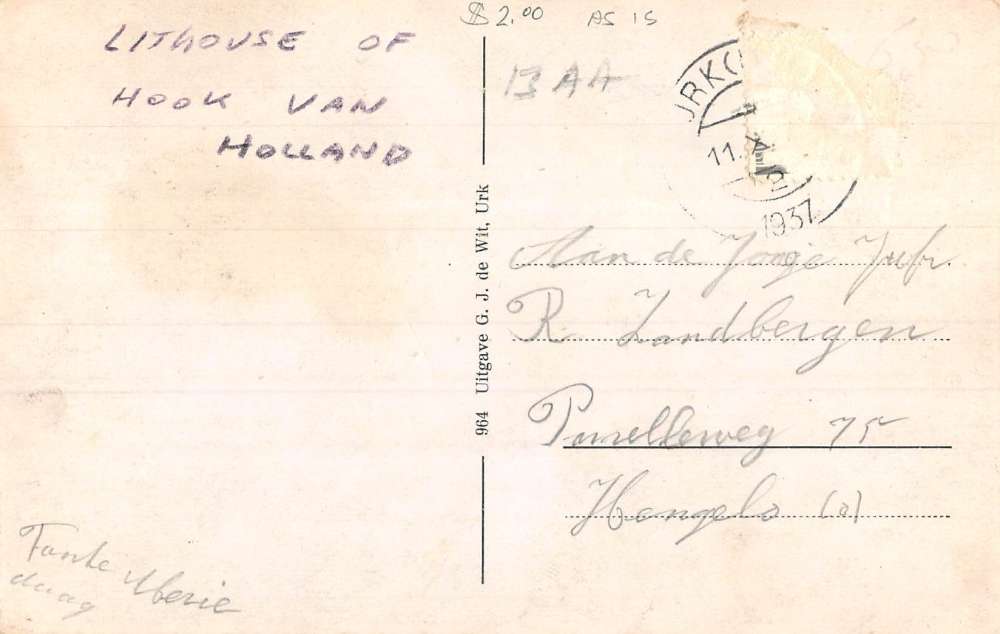 $ 2.00 AS IS
LITHOUSE OF
HOOK VAN
HOLLAND
13 AA
URK
11. X
1937
964 Uitgave G. J. de Wit, Urk
Aan de Jonge Jufr.
R Zandbergen
75
Hengelo (o)
Tante